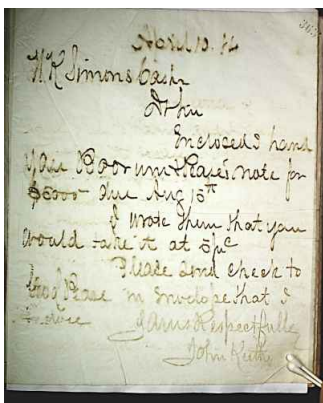 April 10. 94
W K Simons Cashr
D Sir
Enclosed I hand
you Boorum & Pease's note for
$5000 due Aug 15th
I wrote them that you
would take it at 5 pc
Please send check to
Geo L Pease in envelope that I
enclose
Yours Respectfully
John